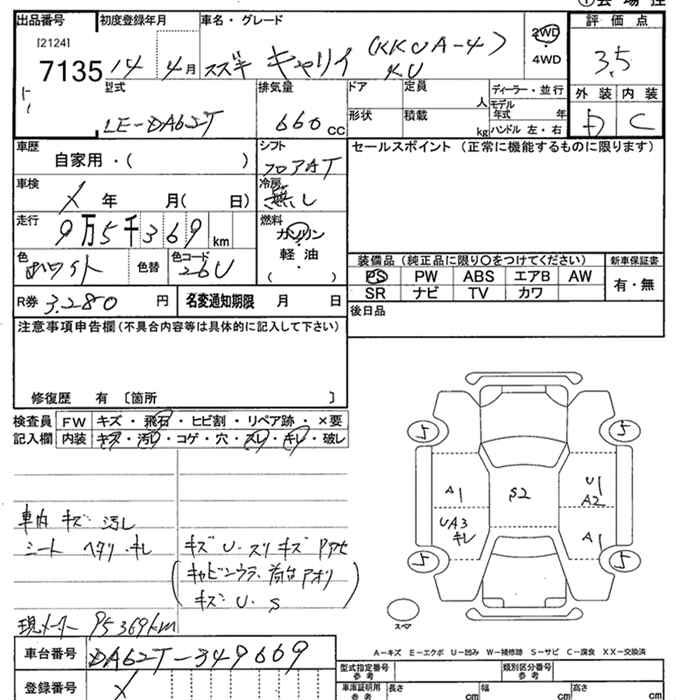 ①会場控
出品番号 初度登録年月 車名・グレード 2WD 評価点
[2124]
7135 14年4月 スズキ キャリイ (KKUA-4) KU 4WD 3.5
型式 排気量 ドア 定員 ディーラー・並行 外装 内装
人 モデル 年式 年
LE-DA62T 660cc 形状 積載 kg ハンドル 左・右 D C
車歴 シフト セールスポイント (正常に機能するものに限ります)
自家用・( ) フロアAT
車検 冷房
X年 月( 日) 無し
走行 燃料
9万5千369km ガソリン
色 色替 色コード 軽油
ホワイト 26U ( )
装備品 (純正品に限り○をつけてください) 新車保証書
PS PW ABS エアB AW 有・無
SR ナビ TV カワ
R券 3.280円 名変通知期限 月 日 後日品
注意事項申告欄(不具合内容等は具体的に記入して下さい)
修復歴 有 〔箇所 〕
検査員 FW キズ・飛石・ヒビ割・リペア跡・×要
記入欄 内装 キズ・汚レ・コゲ・穴・スレ・キレ・破レ
5 5
A1 U1
S2 A2
UA3 A1
キレ
5 5
車内 キズ 汚し
シート ヘタリ・キレ キズ U・スリ キズ
(キャビンウラ、荷台アオリ
キズ U・S)
現メーター 95369km
スマ
A-キズ E-エクボ U-凹み W-補修跡 S-サビ C-腐食 XX-交換済
車台番号 DA62T-349669
型式指定番号 参考 類別区分番号 参考
登録番号 X
車庫証明用 参考 長さ cm 幅 cm 高さ cm